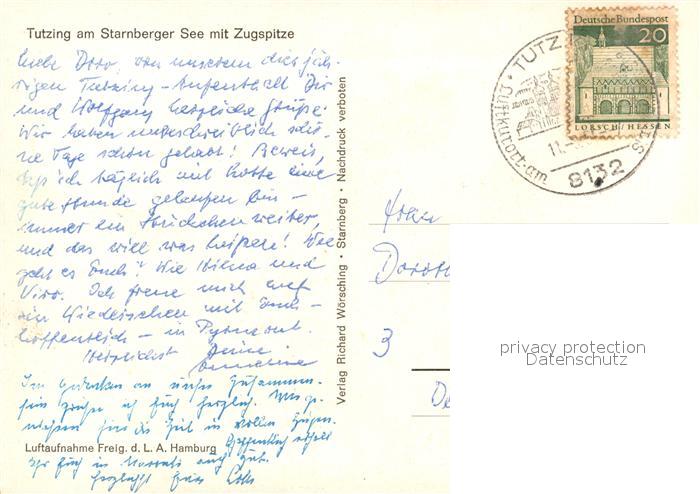 Tutzing am Starnberger See mit Zugspitze
Liebe Doro, von unserem dies jäh-
rigen Tutzing-Aufenthalt Dir
und Wolfgang herzliche Grüße.
Wir haben unbeschreiblich schö-
ne Tage schon gehabt! Beweis,
daß ich täglich mit Lotte eine
gute Stunde gelaufen bin -
immer ein Stückchen weiter,
und das will was heißen! Wie
geht es Euch? Wie und
Ich freue mich auf
ein Wiedersehen mit Euch -
hoffentlich - in Pyrmont.
Herzlichst Deine
Im Gedenken an unser Zusammen-
sein grüße ich Euch herzlich. Wir ge-
nießen die Zeit in vollen Zügen.
Hoffentlich erholt
Ihr Euch in auch gut.
Eure Lotte
Luftaufnahme Freig. d. L. A. Hamburg
Verlag Richard Wörsching • Starnberg • Nachdruck verboten
Deutsche Bundespost
20
LORSCH/HESSEN
TUTZ
Luftkurort am
11.
8132
Frau
Doroth
3
De
privacy protection
Datenschutz